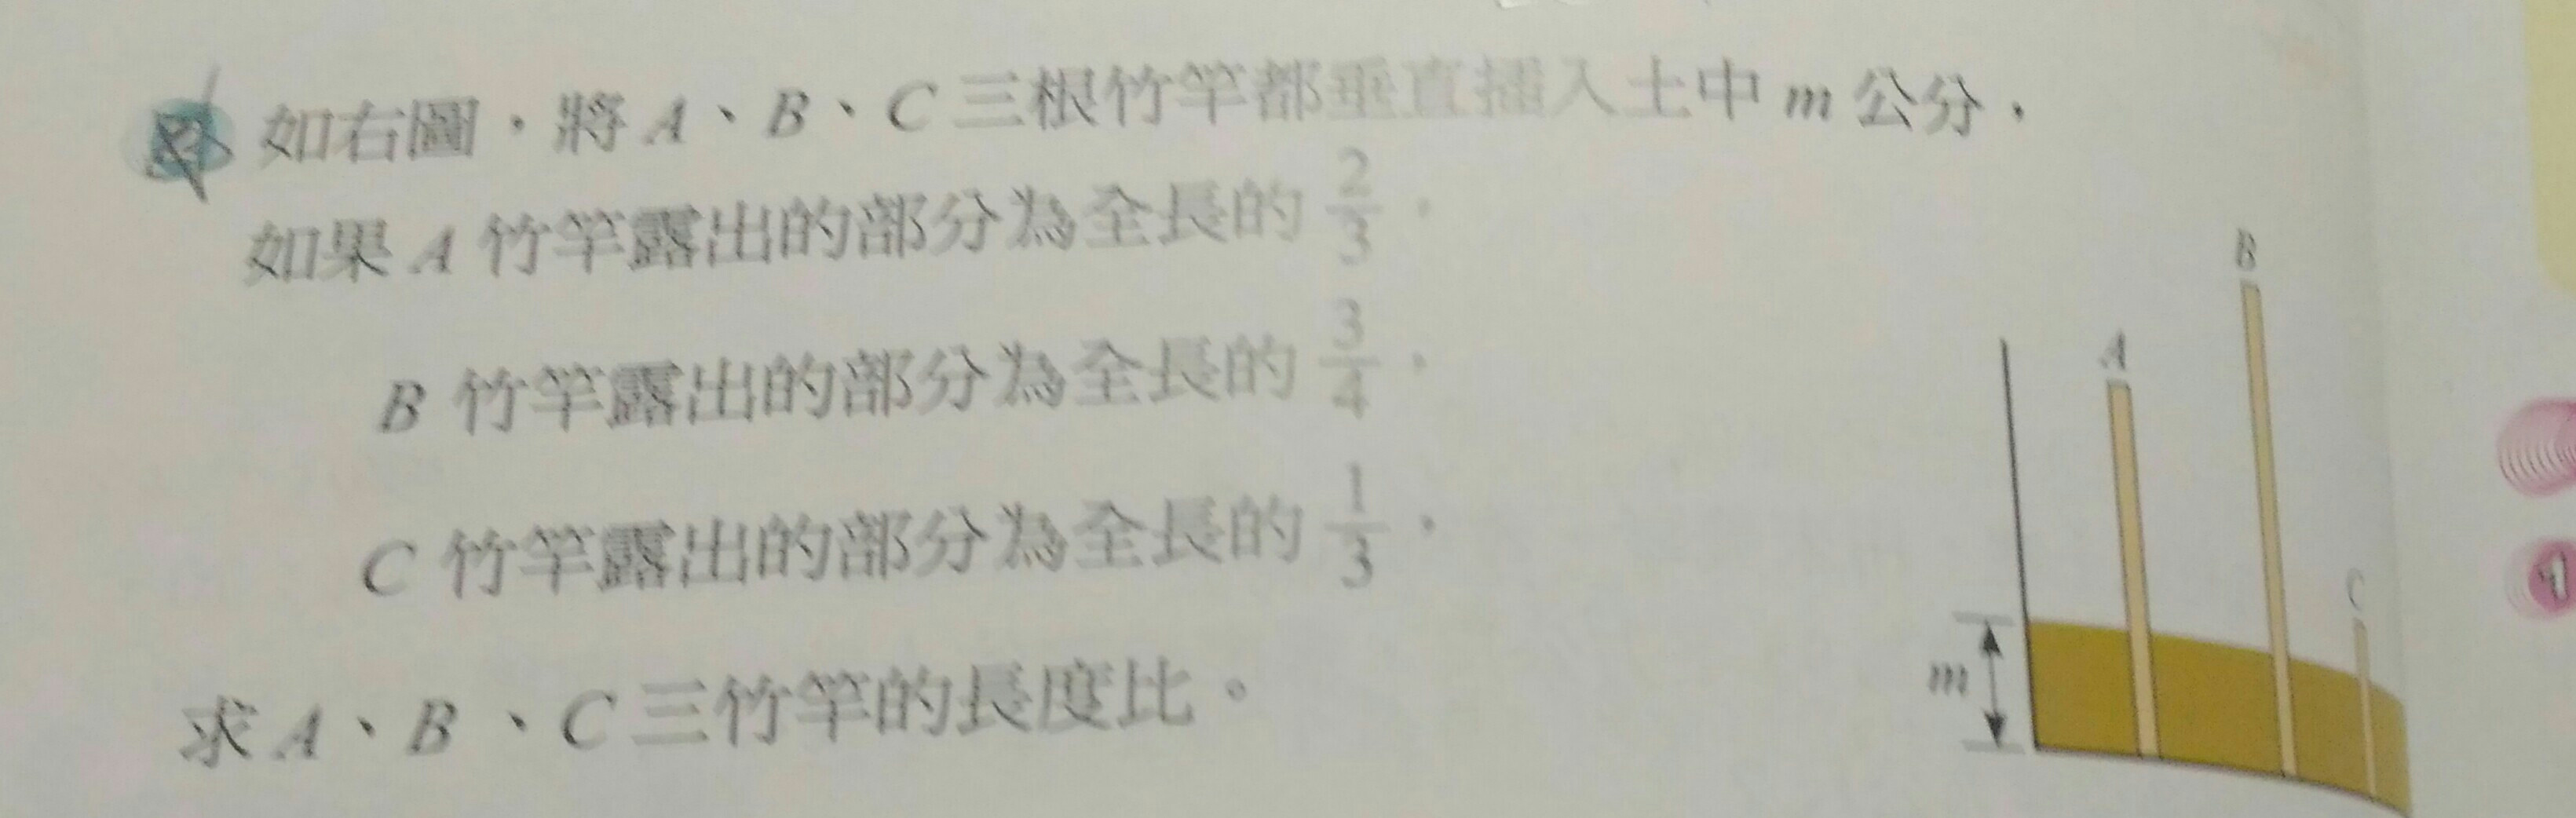 如右圖，將 A、B、C 三根竹竿都垂直插入土中 m 公分，
如果 A 竹竿露出的部分為全長的 2/3，
B 竹竿露出的部分為全長的 3/4，
C 竹竿露出的部分為全長的 1/3，
求 A、B、C 三竹竿的長度比。
B
A
C
m
1